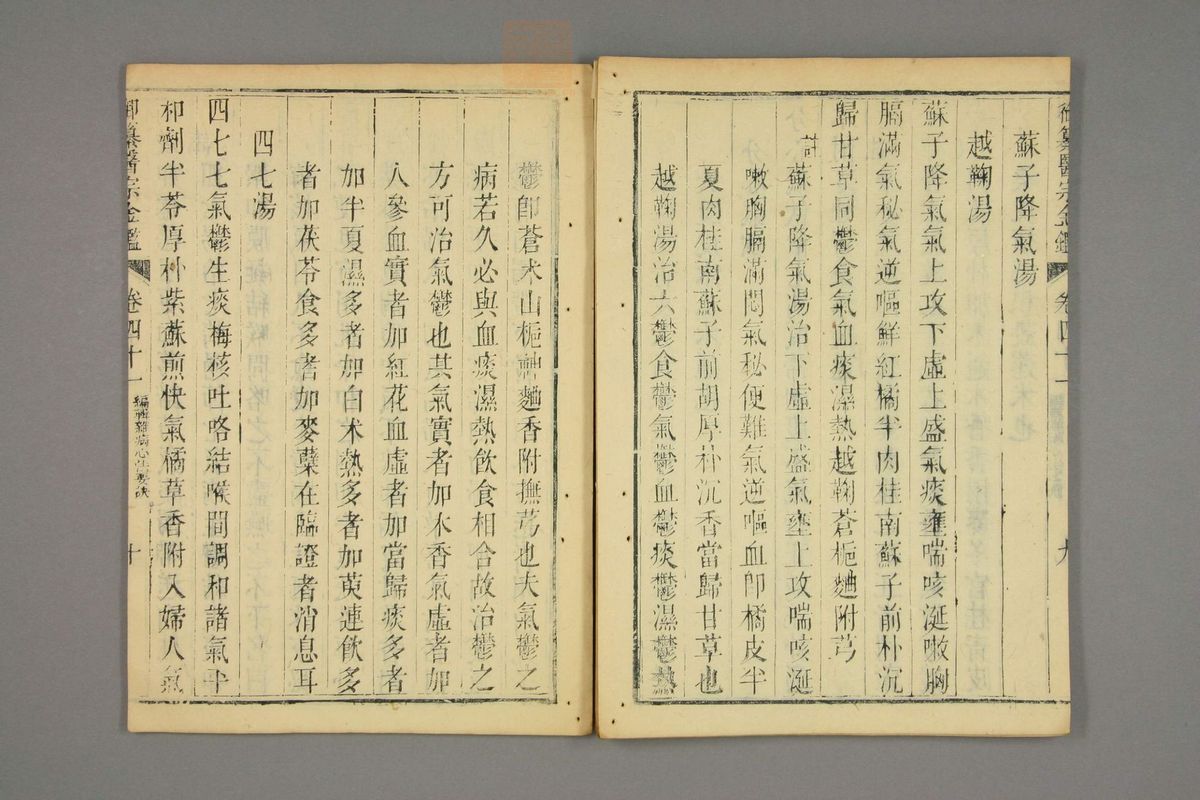 御纂醫宗金鑑 卷四十一 九
蘇子降氣湯
越鞠湯
蘇子降氣氣上攻下虛上盛氣痰壅喘咳涎嗽胸
膈滿氣秘氣逆嘔鮮紅橘半肉桂南蘇子前朴沉
歸甘草同鬱食氣血痰濕熱越鞠蒼梔麯附芎
註蘇子降氣湯治下虛上盛氣壅上攻喘咳涎
嗽胸膈滿悶氣秘便難氣逆嘔血即橘皮半
夏肉桂南蘇子前胡厚朴沉香當歸甘草也
越鞠湯治六鬱食鬱氣鬱血鬱痰鬱濕鬱熱
鬱即蒼朮山梔神麯香附撫芎也夫氣鬱之
病若久必與血痰濕熱飲食相合故治鬱之
方可治氣鬱也其氣實者加木香氣虛者加
人參血實者加紅花血虛者加當歸痰多者
加半夏濕多者加白朮熱多者加萸連飲多
者加茯苓食多者加麥蘗在臨證者消息耳
四七湯
四七七氣鬱生痰梅核吐咯結喉間調和諸氣平
和劑半苓厚朴紫蘇煎快氣橘草香附入婦人氣
御纂醫宗金鑑 卷四十一 編輯雜病心法要訣 十